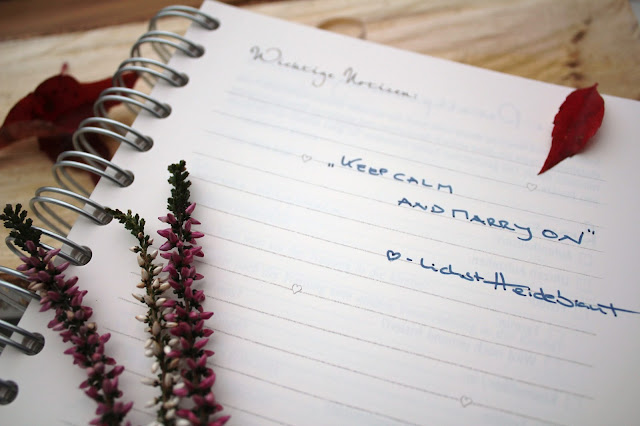 Wichtige Notizen:
„KEEP CALM
AND MARRY ON"
♡-lichst Heidebraut